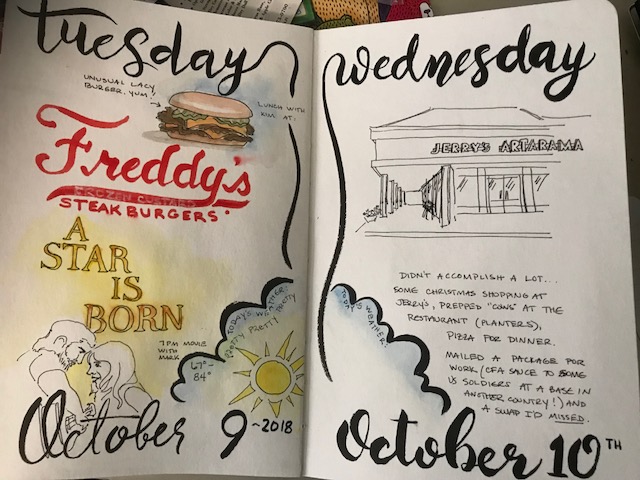 tuesday
UNUSUAL LACY
BURGER. YUM!
LUNCH WITH
KIM AT:
Freddy's
FROZEN CUSTARD
STEAKBURGERS
A
STAR
IS
BORN
7PM MOVIE
WITH MARK
TODAY'S WEATHER:
PRETTY PRETTY PRETTY
67°-
84°
October 9~2018
wednesday
JERRY'S ARTARAMA
DIDN'T ACCOMPLISH A LOT...
SOME CHRISTMAS SHOPPING AT
JERRY'S, PREPPED "CONS" AT THE
RESTAURANT (PLANTERS),
PIZZA FOR DINNER.
MAILED A PACKAGE FOR
WORK (CFA SAUCE TO SOME
US SOLDIERS AT A BASE IN
ANOTHER COUNTRY!) AND
A SWAP I'D MISSED.
TODAY'S WEATHER:
October 10TH